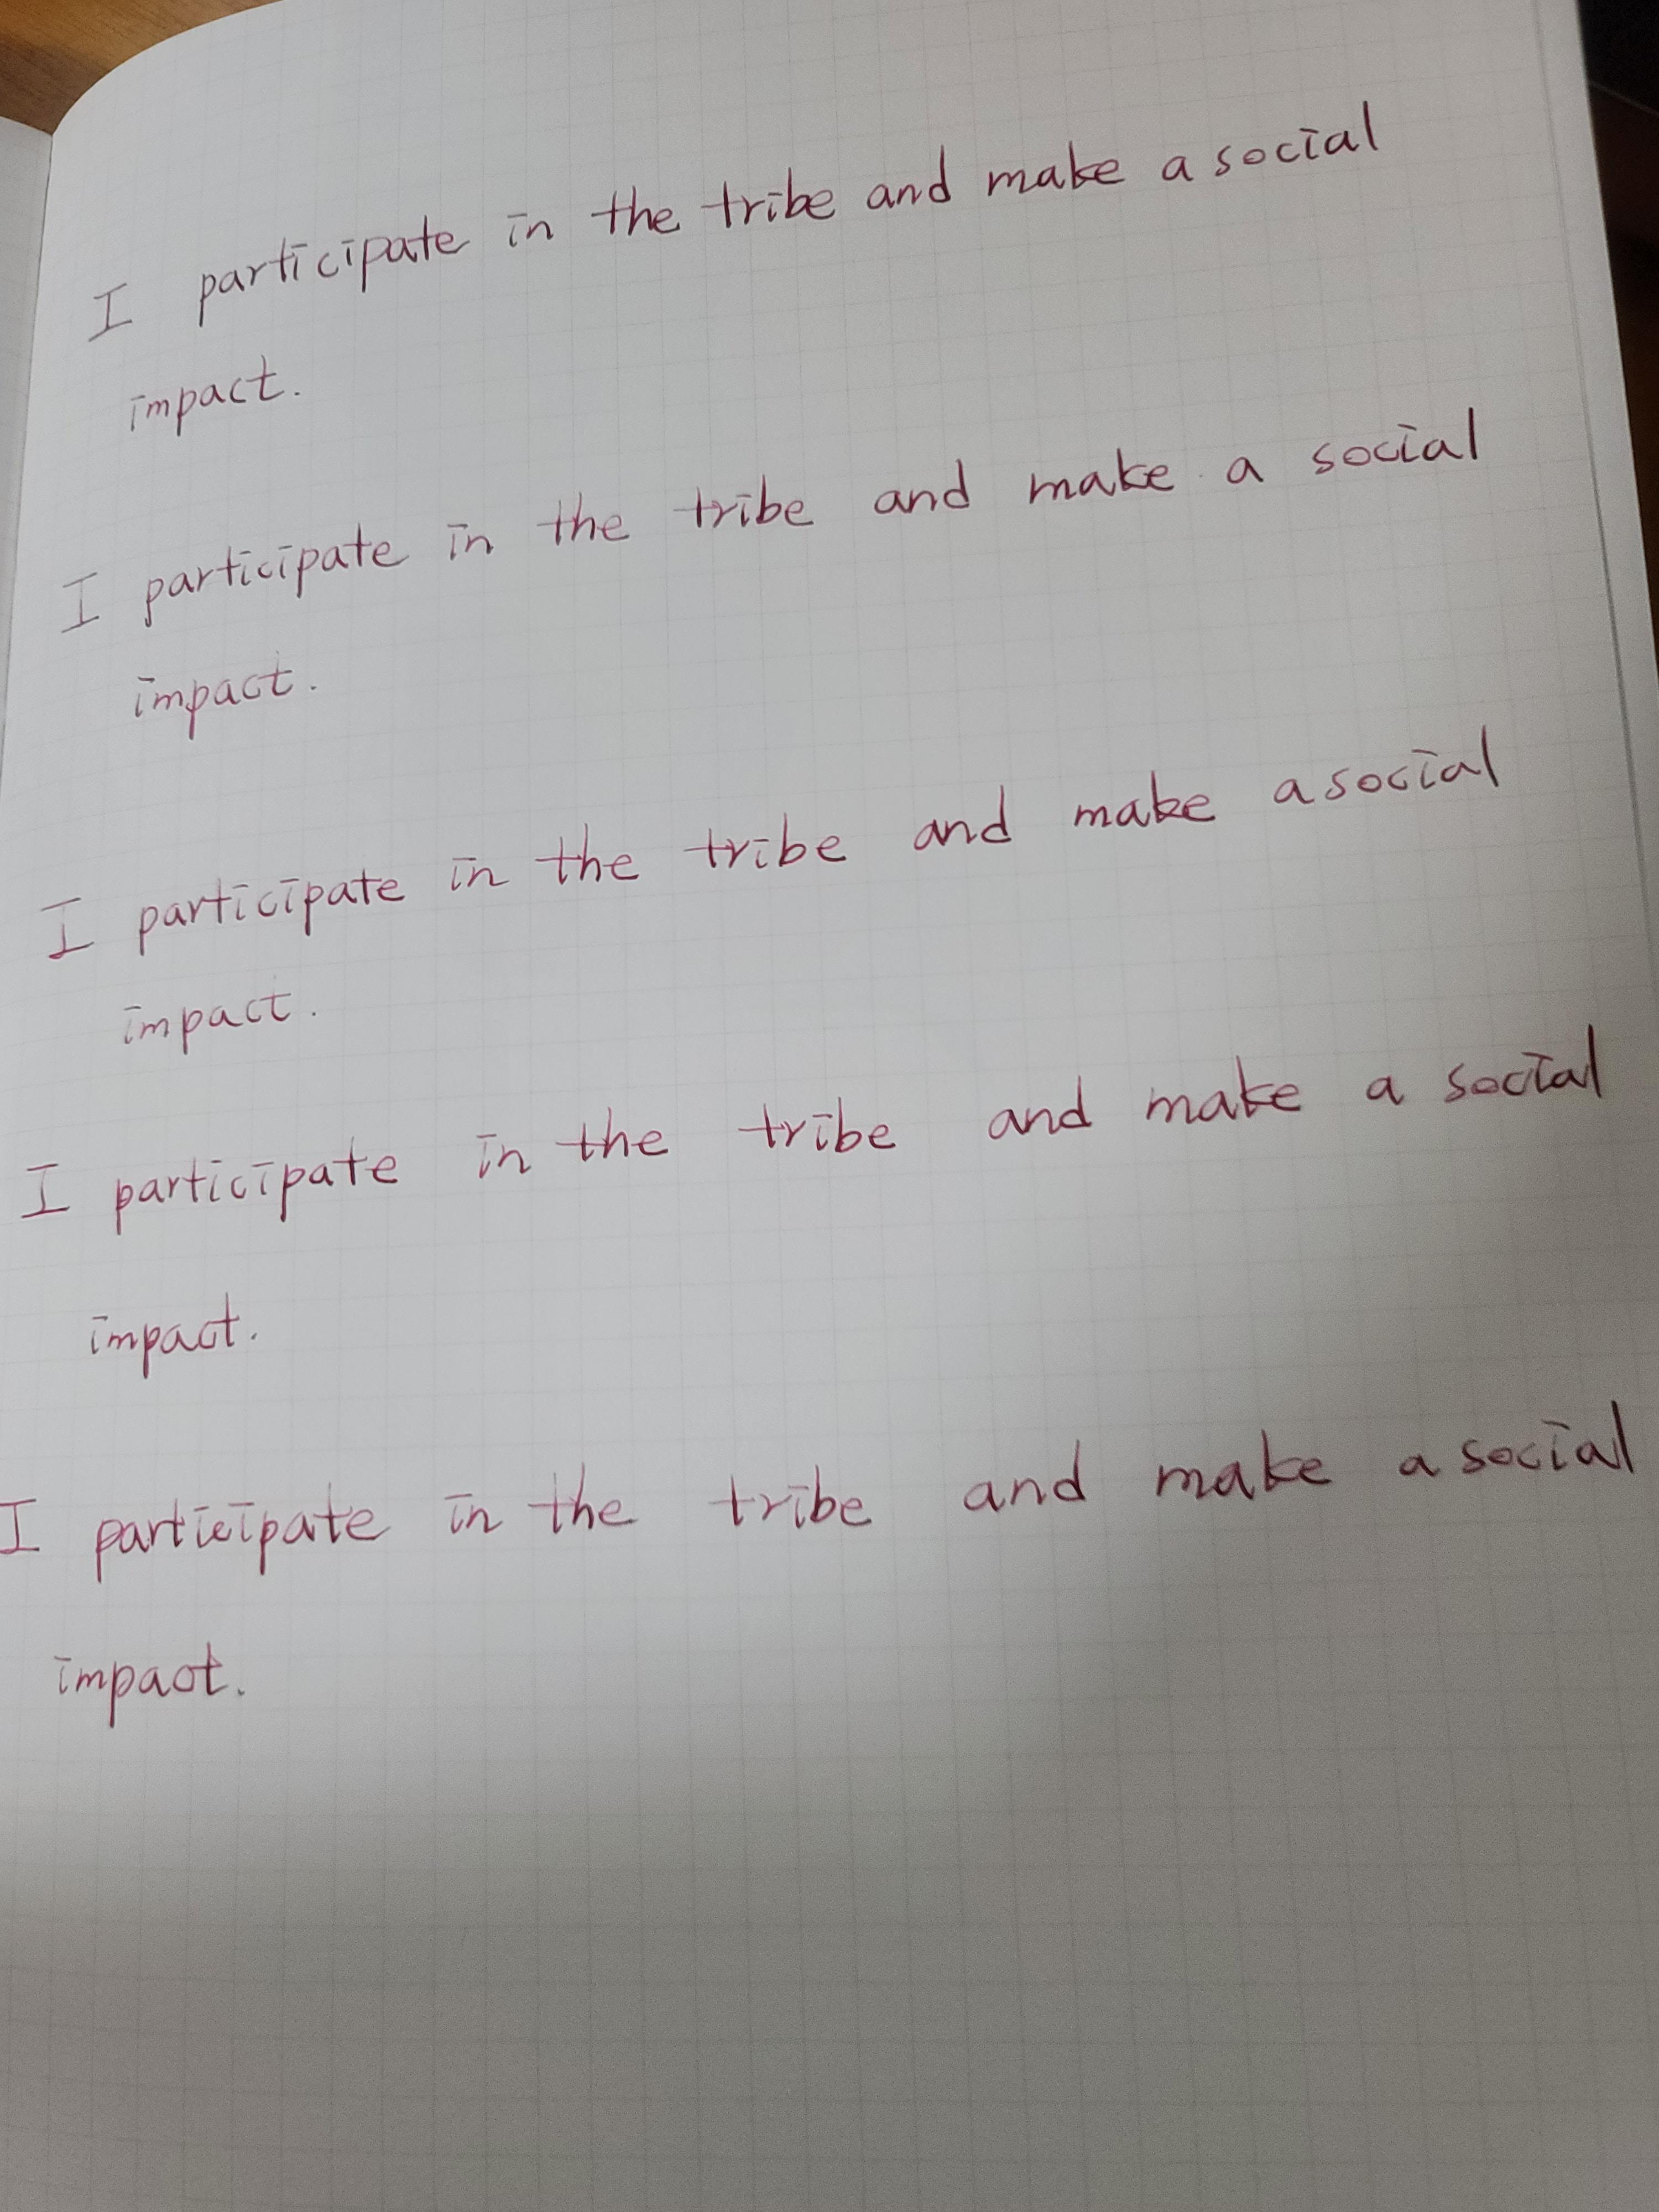 I participate in the tribe and make a social
impact.
I participate in the tribe and make a social
impact.
I participate in the tribe and make a social
impact.
I participate in the tribe and make a social
impact.
I participate in the tribe and make a social
impact.